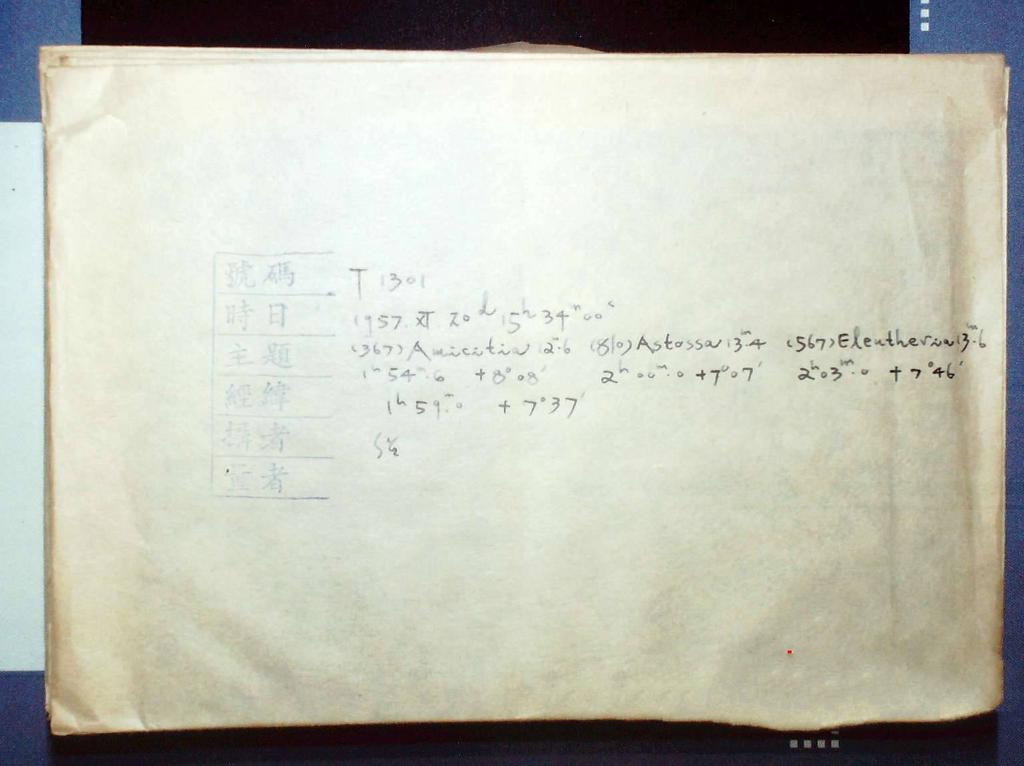 號碼 T 1301
時日 1957. XI. 20ᵈ 15ʰ 34ᵐ00ˢ
主題 (367) Amicitia 12ᵐ.6 (810) Atossa 13ᵐ.4 (567) Eleutheria 13ᵐ.6
1ʰ 54ᵐ.6 +8°08' 2ʰ00ᵐ.0 +7°07' 2ʰ03ᵐ.0 +7°46'
經緯 1ʰ 59ᵐ.0 +7°37'
攝者
量者